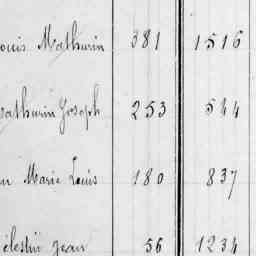 Mathurin 381 1516
Mathurin Joseph 253 544
Marie Louis 180 837
Célestin Jean 56 1234